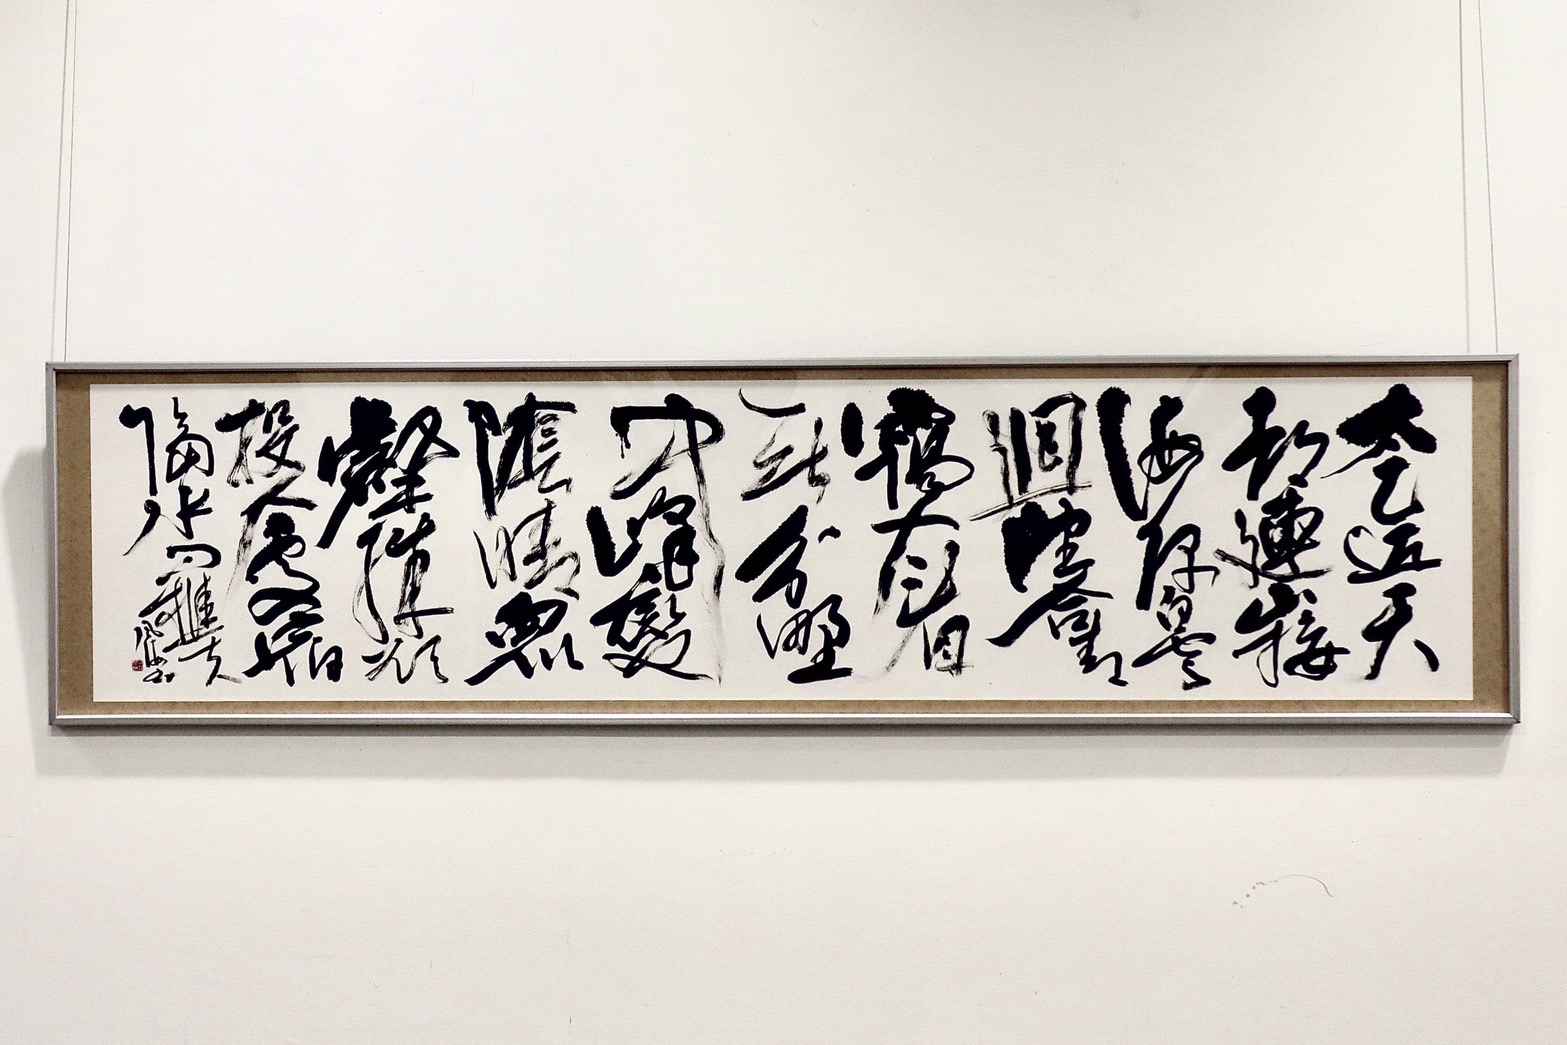 太乙近天
都連山接
海隅白雲
迴望合青
靄入看
無分野
中峰變
陰晴衆
壑殊欲
投人處宿
隔水問樵夫